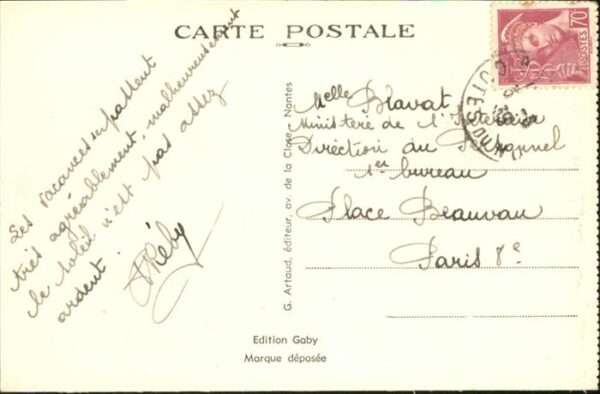 CARTE POSTALE
Les vacances se passent
très agréablement. malheureusement
le soleil n'est pas assez
ardent.
G. Artaud, éditeur, av. de la Close - Nantes
70
POSTES
Melle Blavat
Ministère de l'Intérieur
Direction du Personnel
1er bureau
Place Beauvau
Paris 8e
Edition Gaby
Marque déposée